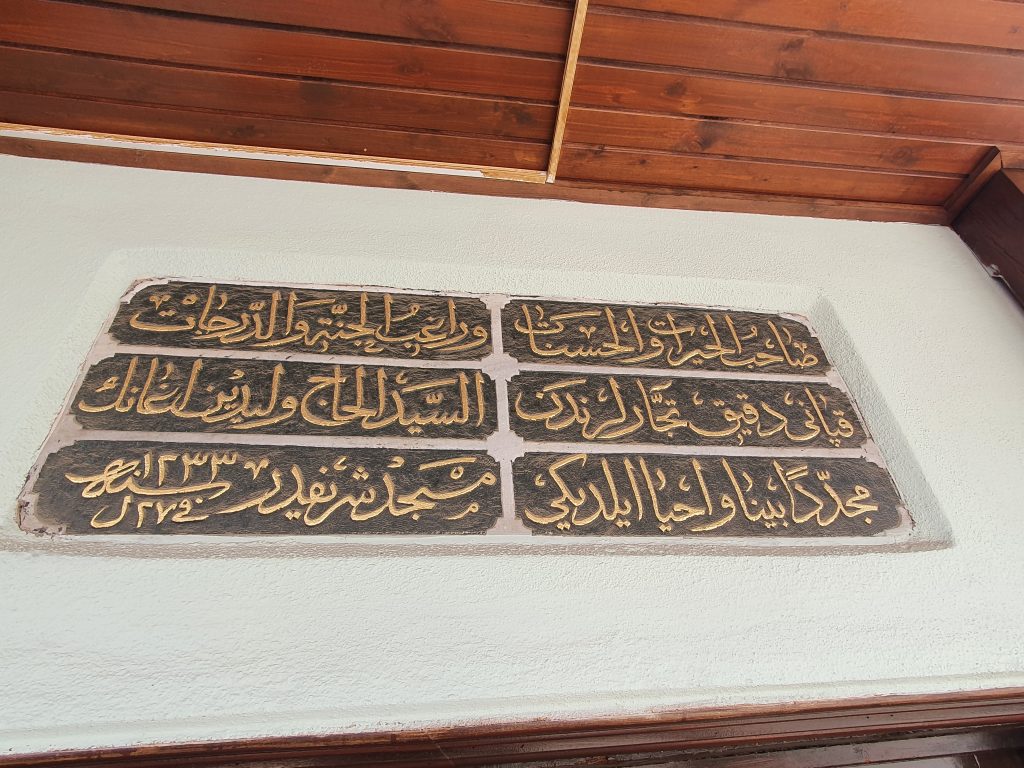 صاحب الخيرات والحسنات
وراغب الجنة والدّرجات
قپانی دقیق تجّار لرندن
السيّد الحاج وليد بن اغانك
مجدّدًا بينا و احيا ايلديكي
مسجد شريفدر سنه ١٢٣٣
في ٢٧ ل